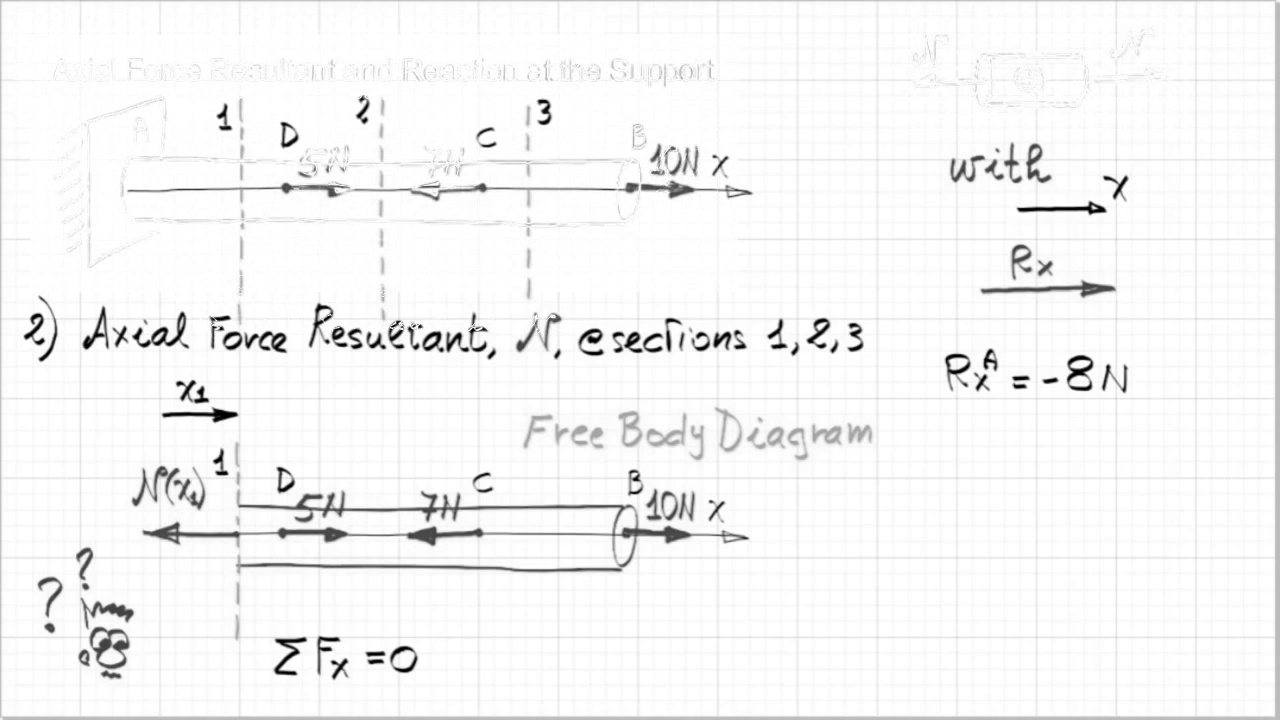 Axial Force Resultant and Reaction at the Support
N N
1 2 3
A D C B
5N 7N 10N x
with
x
Rx
2) Axial Force Resultant, N, @sections 1,2,3
RxA = -8N
x1
Free Body Diagram
N(x1) 1 D C B
5N 7N 10N x
? ?
ΣFx = 0